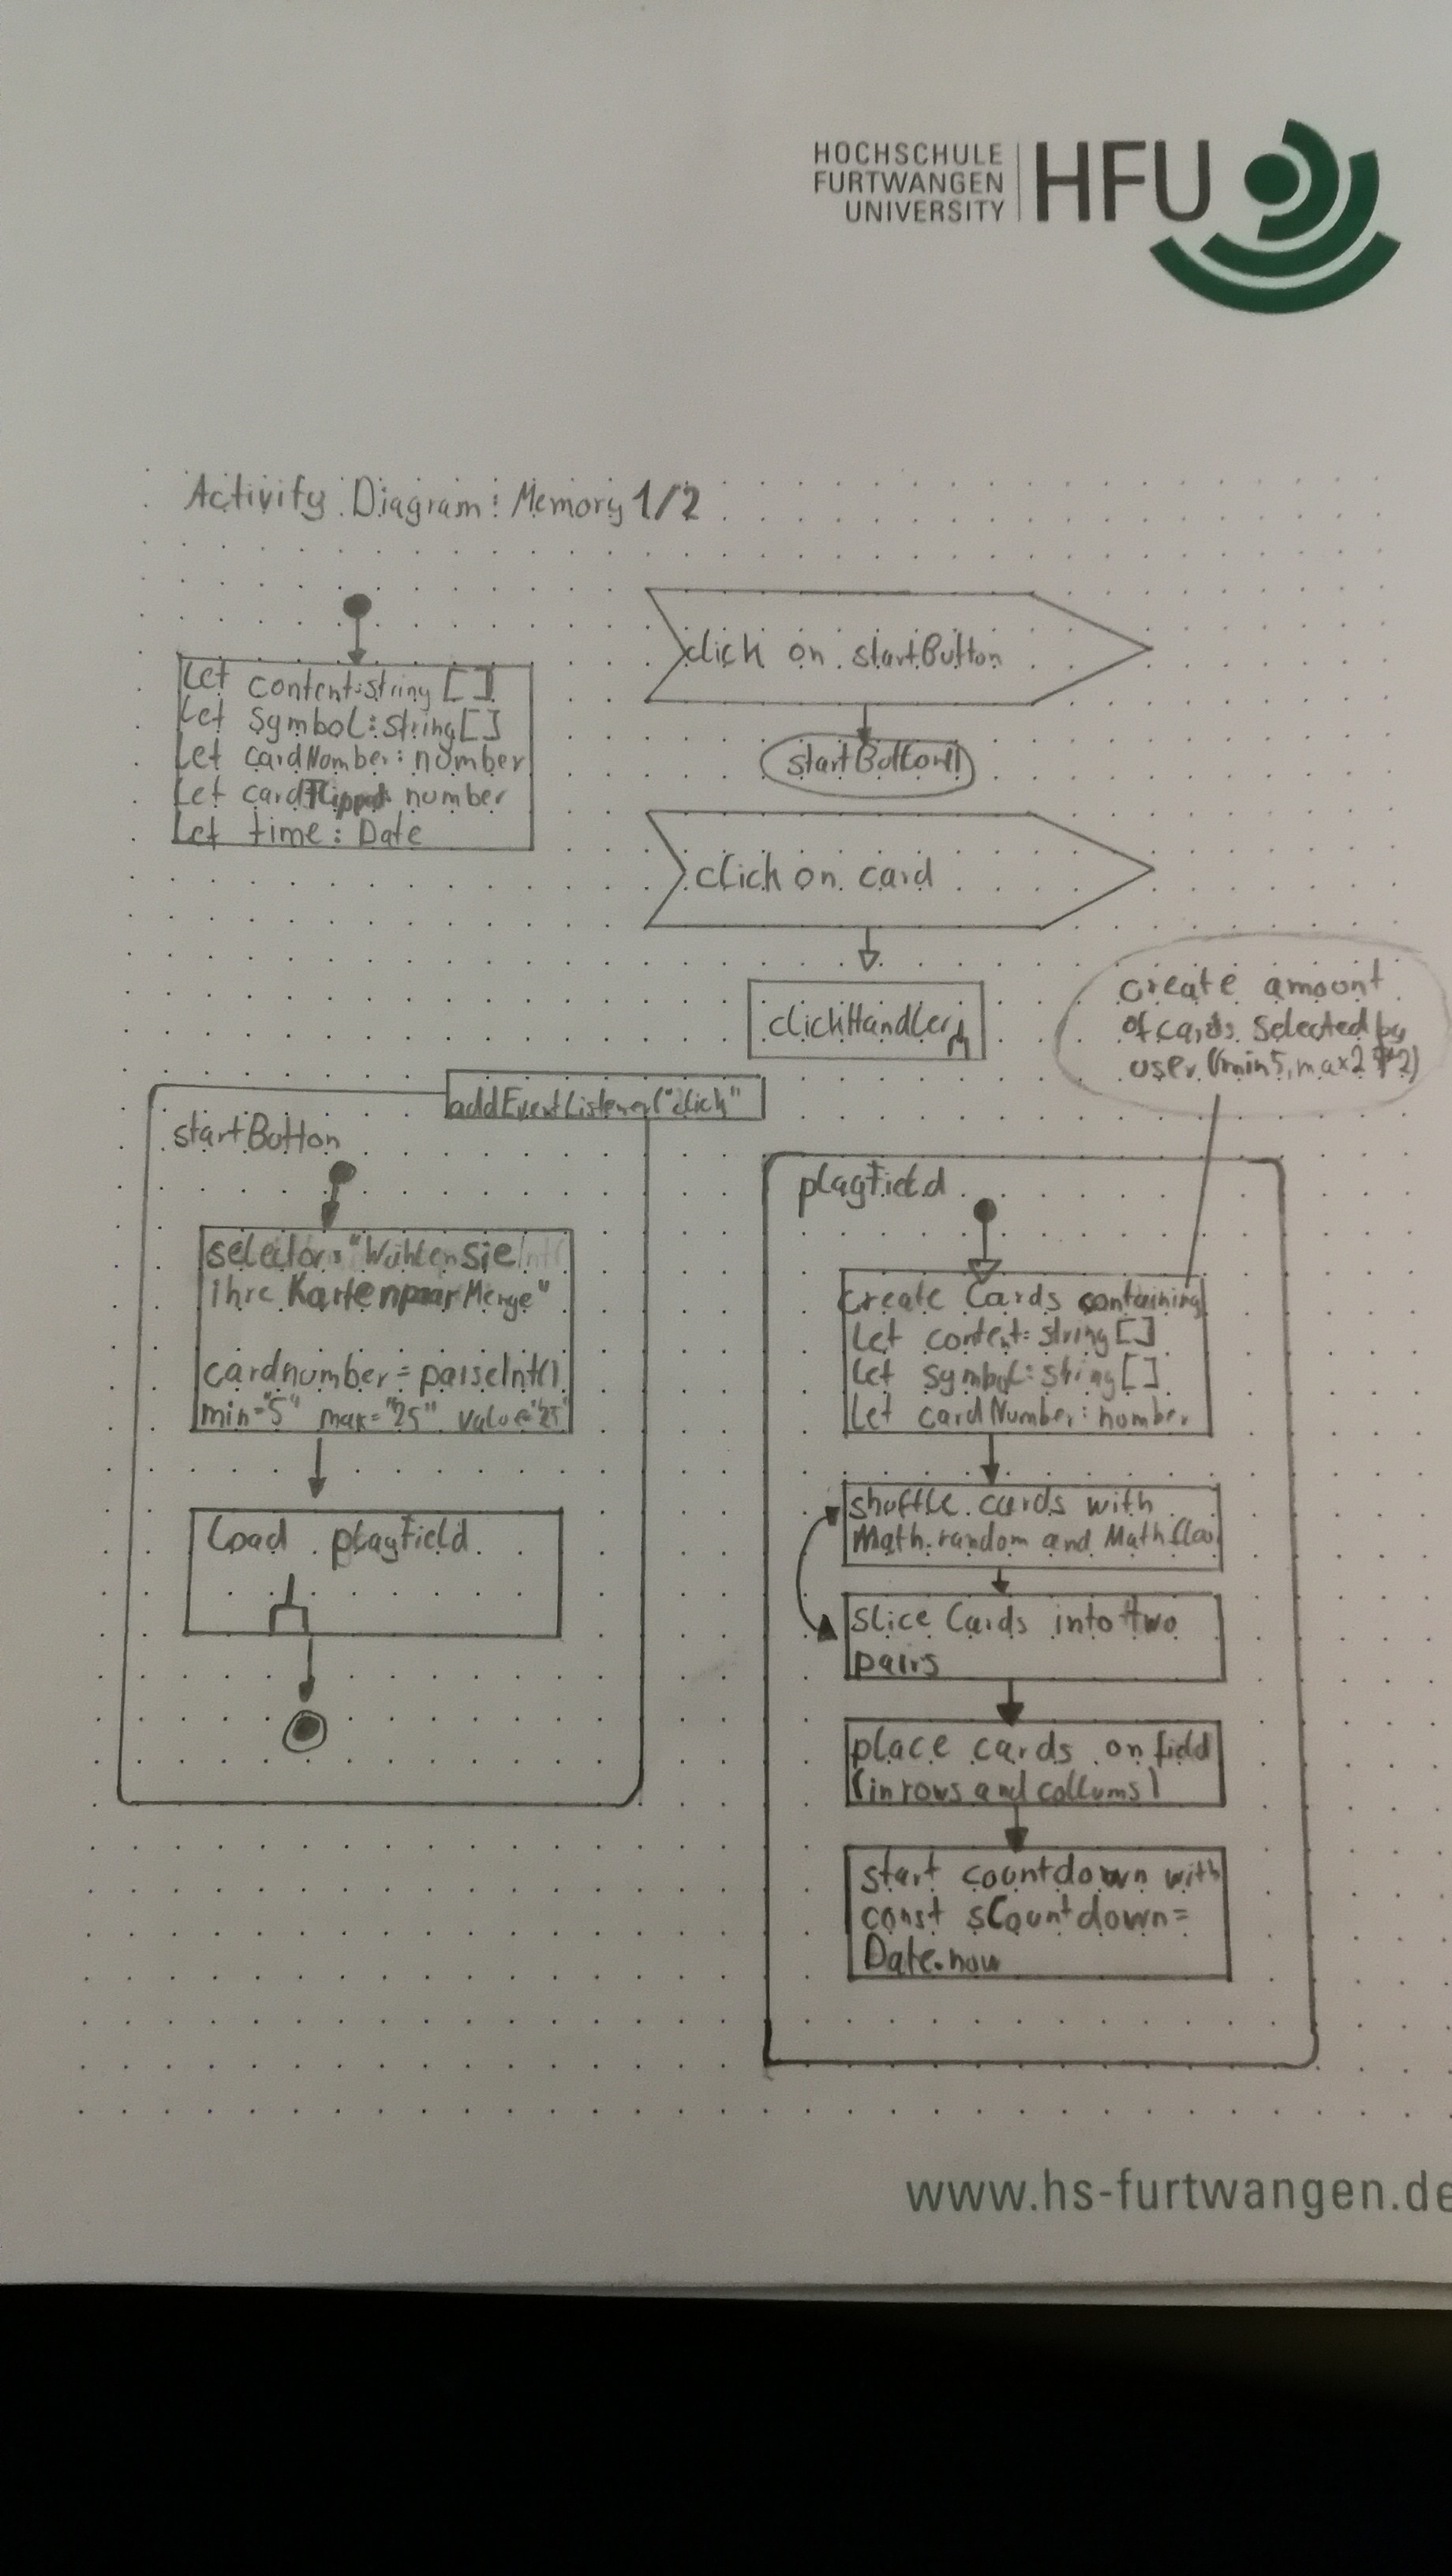 HOCHSCHULE
FURTWANGEN
UNIVERSITY
HFU
Activity Diagram: Memory 1/2
Let content:string []
Let symbol:string[]
Let cardNumber: number
Let cardFlipped: number
Let time: Date
click on startButton
startButton()
click on card
clickHandler
create amount
of cards selected by
user (min5, max2
addEventListener("click"
startButton
selector: "Wählen sie
ihre Kartenpaar Menge"
cardnumber = parseInt()
min="5" max="25" value="25"
Load playField
playField
create Cards containing
Let content: string[]
Let symbol: string[]
Let cardNumber: number
shuffle cards with
Math.random and Math.floo
slice Cards into two
pairs
place cards on field
(in rows and collums)
start countdown with
const sCountdown=
Date.now
www.hs-furtwangen.de